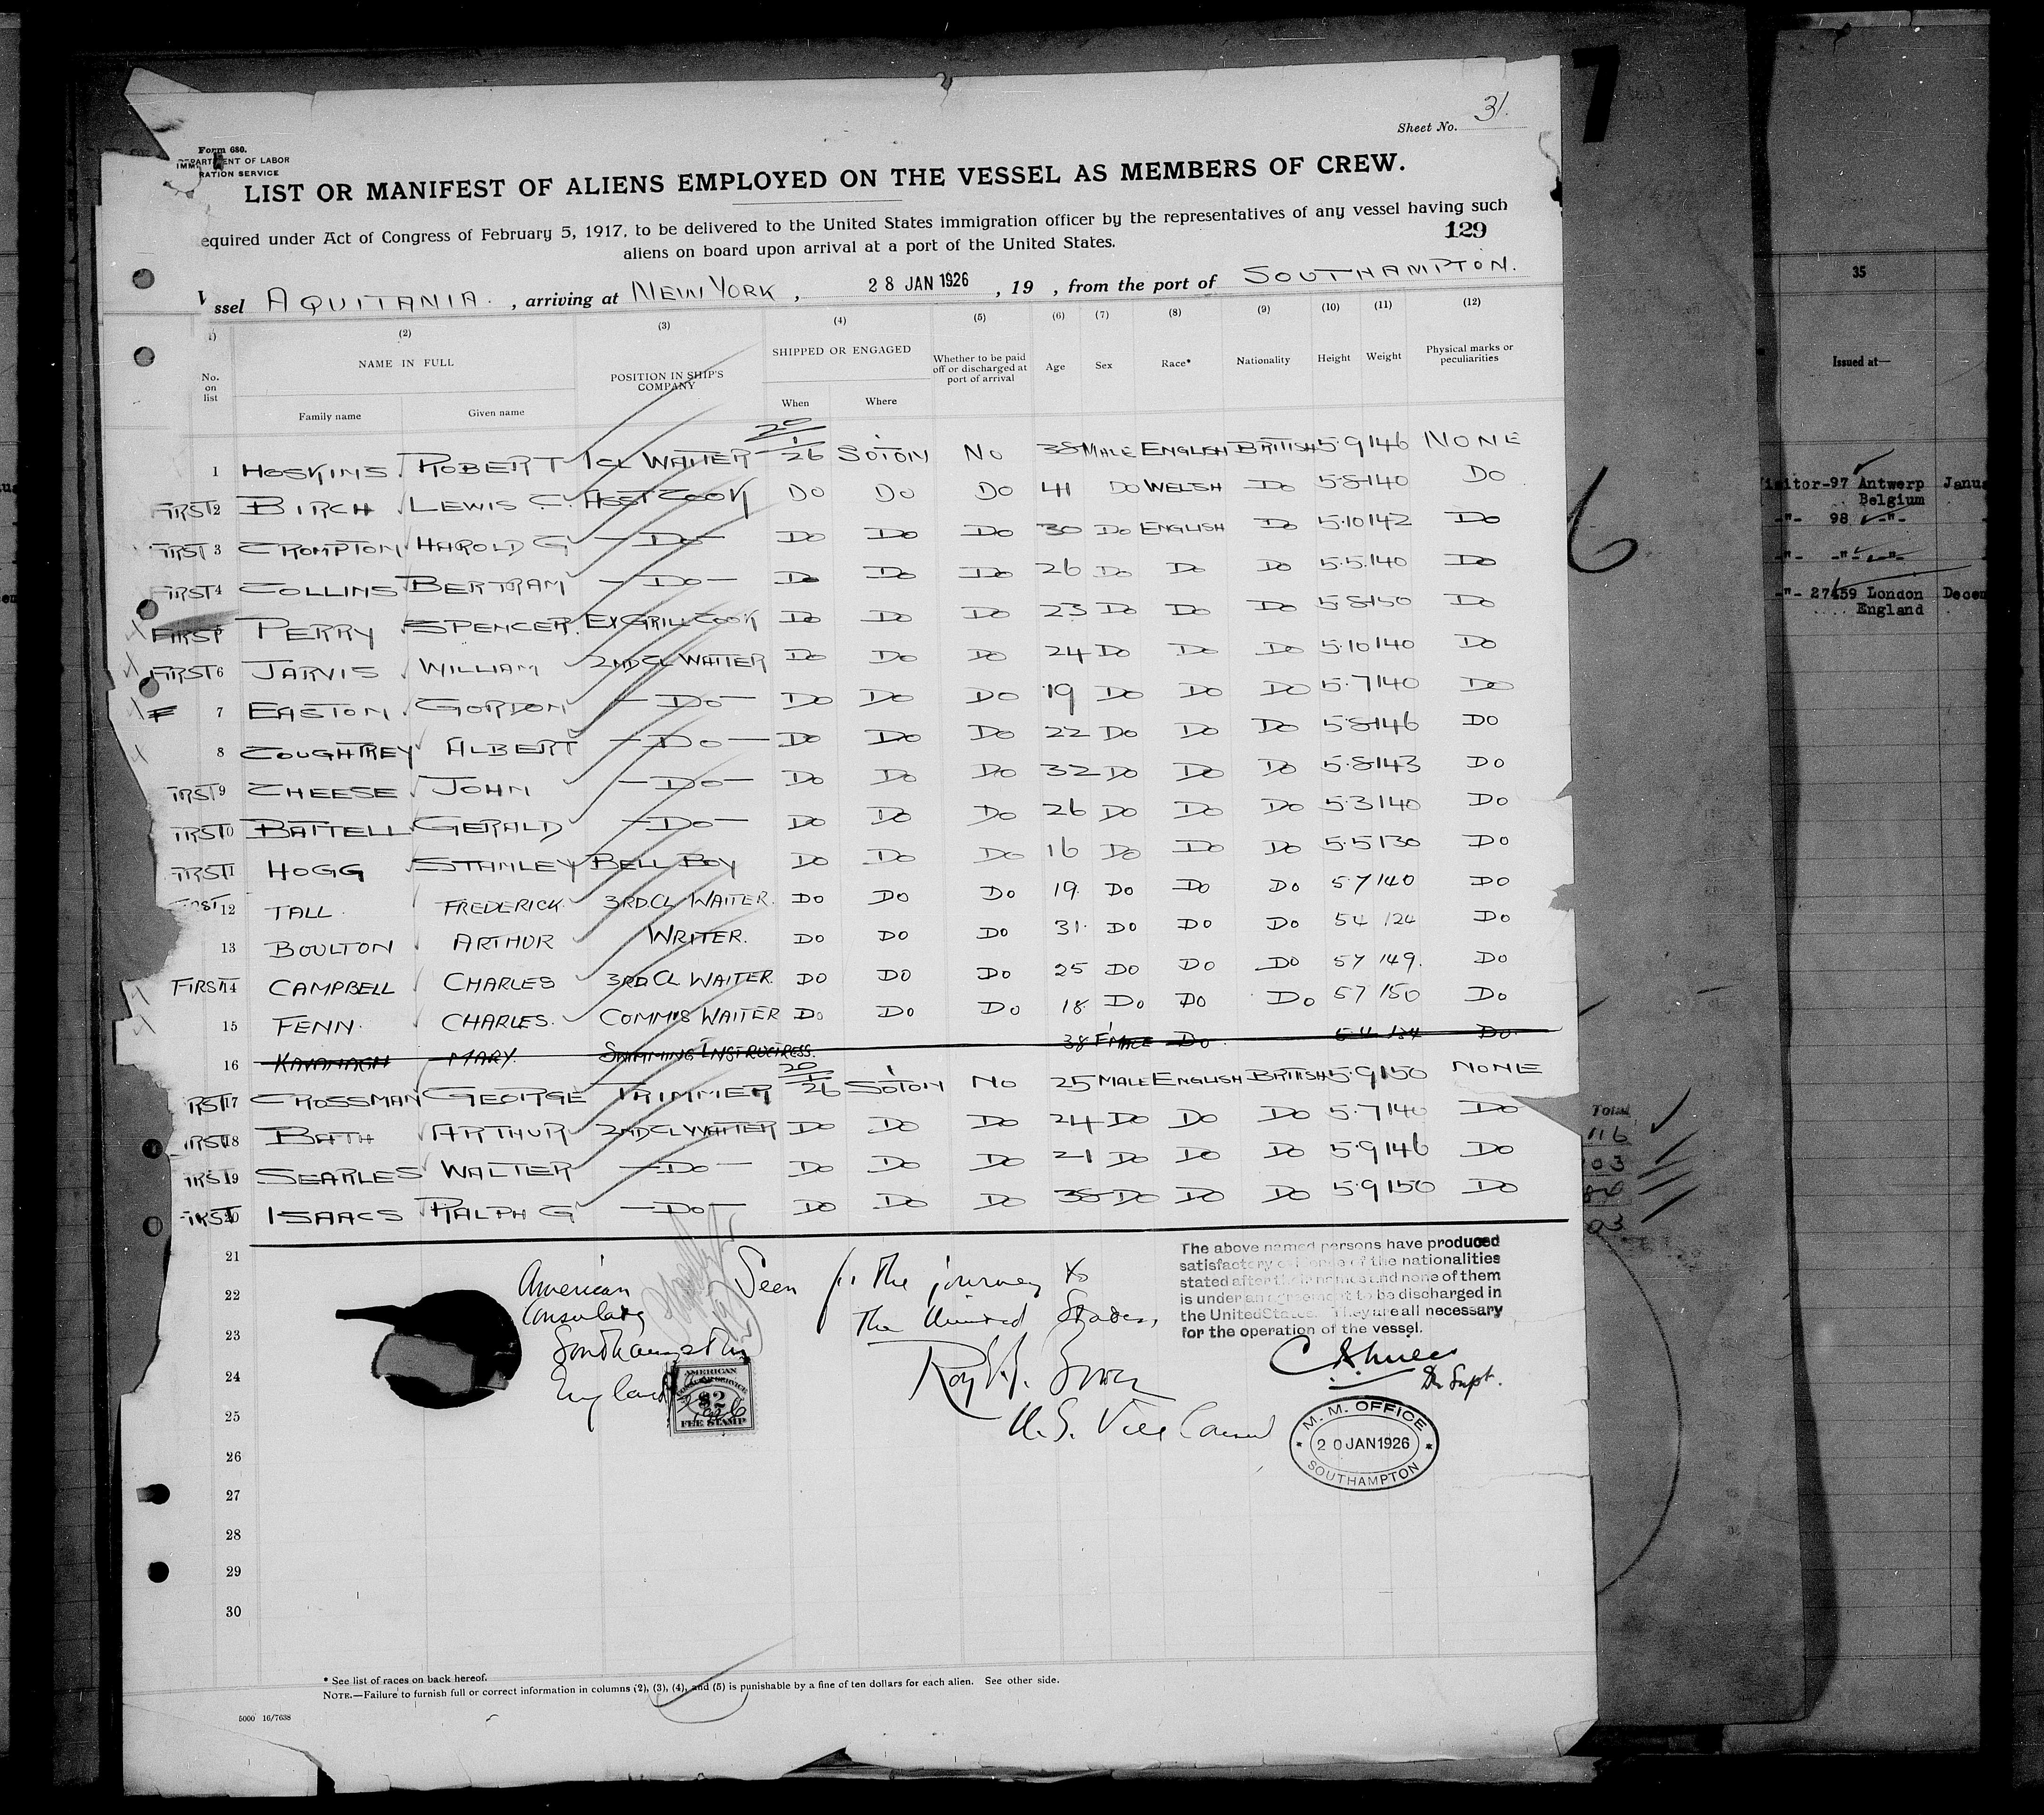 Sheet No. 31.
Form 680.
DEPARTMENT OF LABOR
IMM RATION SERVICE
LIST OR MANIFEST OF ALIENS EMPLOYED ON THE VESSEL AS MEMBERS OF CREW.
equired under Act of Congress of February 5, 1917, to be delivered to the United States immigration officer by the representatives of any vessel having such
aliens on board upon arrival at a port of the United States.
129
ssel AQUITANIA. , arriving at NEW YORK , 28 JAN 1926 , 19 , from the port of SOUTHAMPTON.
(2) (3) (4) (5) (6) (7) (8) (9) (10) (11) (12)
No. on list NAME IN FULL POSITION IN SHIP'S COMPANY SHIPPED OR ENGAGED Whether to be paid off or discharged at port of arrival Age Sex Race* Nationality Height Weight Physical marks or peculiarities
Family name Given name When Where
1 HOSKINS ROBERT 1CL WAITER 20/1/26 SOTON NO 38 MALE ENGLISH BRITISH 5.9 146 NONE
FIRST 2 BIRCH LEWIS C. ASST COOK DO DO DO 41 DO WELSH DO 5.8 140 DO
FIRST 3 CROMPTON HAROLD G —DO— DO DO DO 30 DO ENGLISH DO 5.10 142 DO
FIRST 4 COLLINS BERTRAM —DO— DO DO DO 26 DO DO DO 5.5. 140 DO
FIRST PERRY SPENCER. EX GRILL COOK DO DO DO 23 DO DO DO 5.8 150 DO
FIRST 6 JARVIS WILLIAM 2ND CL WAITER DO DO DO 24 DO DO DO 5.10 140 DO
F 7 EASTON. GORDON —DO— DO DO DO 19 DO DO DO 5.7 140 DO
8 COUGHTREY ALBERT —DO— DO DO DO 22 DO DO DO 5.8 146 DO
IRST 9 CHEESE JOHN —DO— DO DO DO 32 DO DO DO 5.8 143 DO
IRST 0 BATTELL GERALD —DO— DO DO DO 26 DO DO DO 5.3 140 DO
FIRST 11 HOGG STANLEY BELL BOY DO DO DO 16 DO DO DO 5.5 130 DO
FIRST 12 TALL. FREDERICK. 3RD CL WAITER. DO DO DO 19. DO DO DO 57 140 DO
13 BOULTON ARTHUR WRITER. DO DO DO 31. DO DO DO 54 124 DO
FIRST 14 CAMPBELL CHARLES 3RD CL WAITER. DO DO DO 25 DO DO DO 57 149. DO
15 FENN. CHARLES. COMMIS WAITER DO DO DO 18. DO DO DO 57 150 DO
16 KAVANAGH MARY. SWIMMING INSTRUCTRESS. 38 F'MALE DO. 5.4 134 DO
RST 17 CROSSMAN GEORGE TRIMMER 20/1/26 SOTON NO 25 MALE ENGLISH BRITISH 5.9 150 NONE
IRST 18 BATH ARTHUR 2ND CL WAITER DO DO DO 24 DO DO DO 5.7 140 DO
IRST 19 SEARLES WALTER —DO— DO DO DO 21 DO DO DO 5.9 146 DO
FIRST 20 ISAACS RALPH G —DO— DO DO DO 38 DO DO DO 5.9 150 DO
21
22
23
24
25
26
27
28
29
30
American Seen for the journey to
Consulate the United States,
Southampton
England
U.S. Vice Consul
AMERICAN
CONSULAR SERVICE
$2
FEE STAMP
The above named persons have produced
satisfactory evidence of the nationalities
stated after their names and none of them
is under an agreement to be discharged in
the United States. They are all necessary
for the operation of the vessel.
Dr Supt.
M. M. OFFICE
* 20 JAN 1926 *
SOUTHAMPTON
* See list of races on back hereof.
NOTE.—Failure to furnish full or correct information in columns (2), (3), (4), and (5) is punishable by a fine of ten dollars for each alien. See other side.
5000 16/7638
7
6
Total
116
03
84
03
35
Issued at—
isitor-97 Antwerp Janua
Belgium
-"- 98 -"-
-"- -"- -"-
-"- 27459 London Decem
England